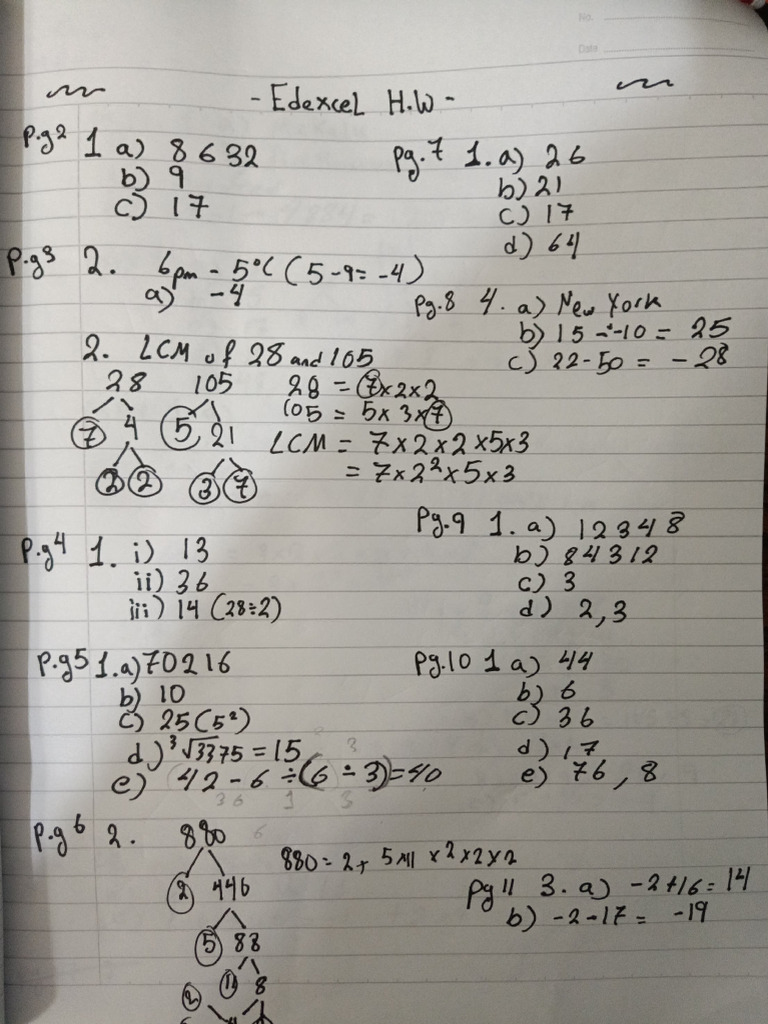 No.
Date
- Edexcel H.W -
P.g2 1 a) 8632
b) 9
c) 17
P.g3 2. 6pm - 5°C (5-9= -4)
a) -4
2. LCM of 28 and 105
28 105
7 4 5 21
2 2 3 7
28 = 7×2×2
105 = 5×3×7
LCM = 7×2×2×5×3
= 7×2²×5×3
P.g4 1. i) 13
ii) 36
iii) 14 (28÷2)
P.g5 1.a) 70216
b) 10
c) 25 (5²)
d) ³√3375 = 15
e) 42 - 6 ÷ (6 ÷ 3) = 40
36 1 3
P.g6 2. 880
2 446
5 88
11 8
2
880 = 2+ 5×11 ×2×2×2
Pg.7 1. a) 26
b) 21
c) 17
d) 64
Pg.8 4. a) New York
b) 15 - -10 = 25
c) 22-50 = -28
Pg.9 1. a) 12348
b) 84312
c) 3
d) 2,3
Pg.10 1 a) 44
b) 6
c) 36
d) 17
e) 76, 8
Pg 11 3. a) -2+16 = 14
b) -2-17 = -19